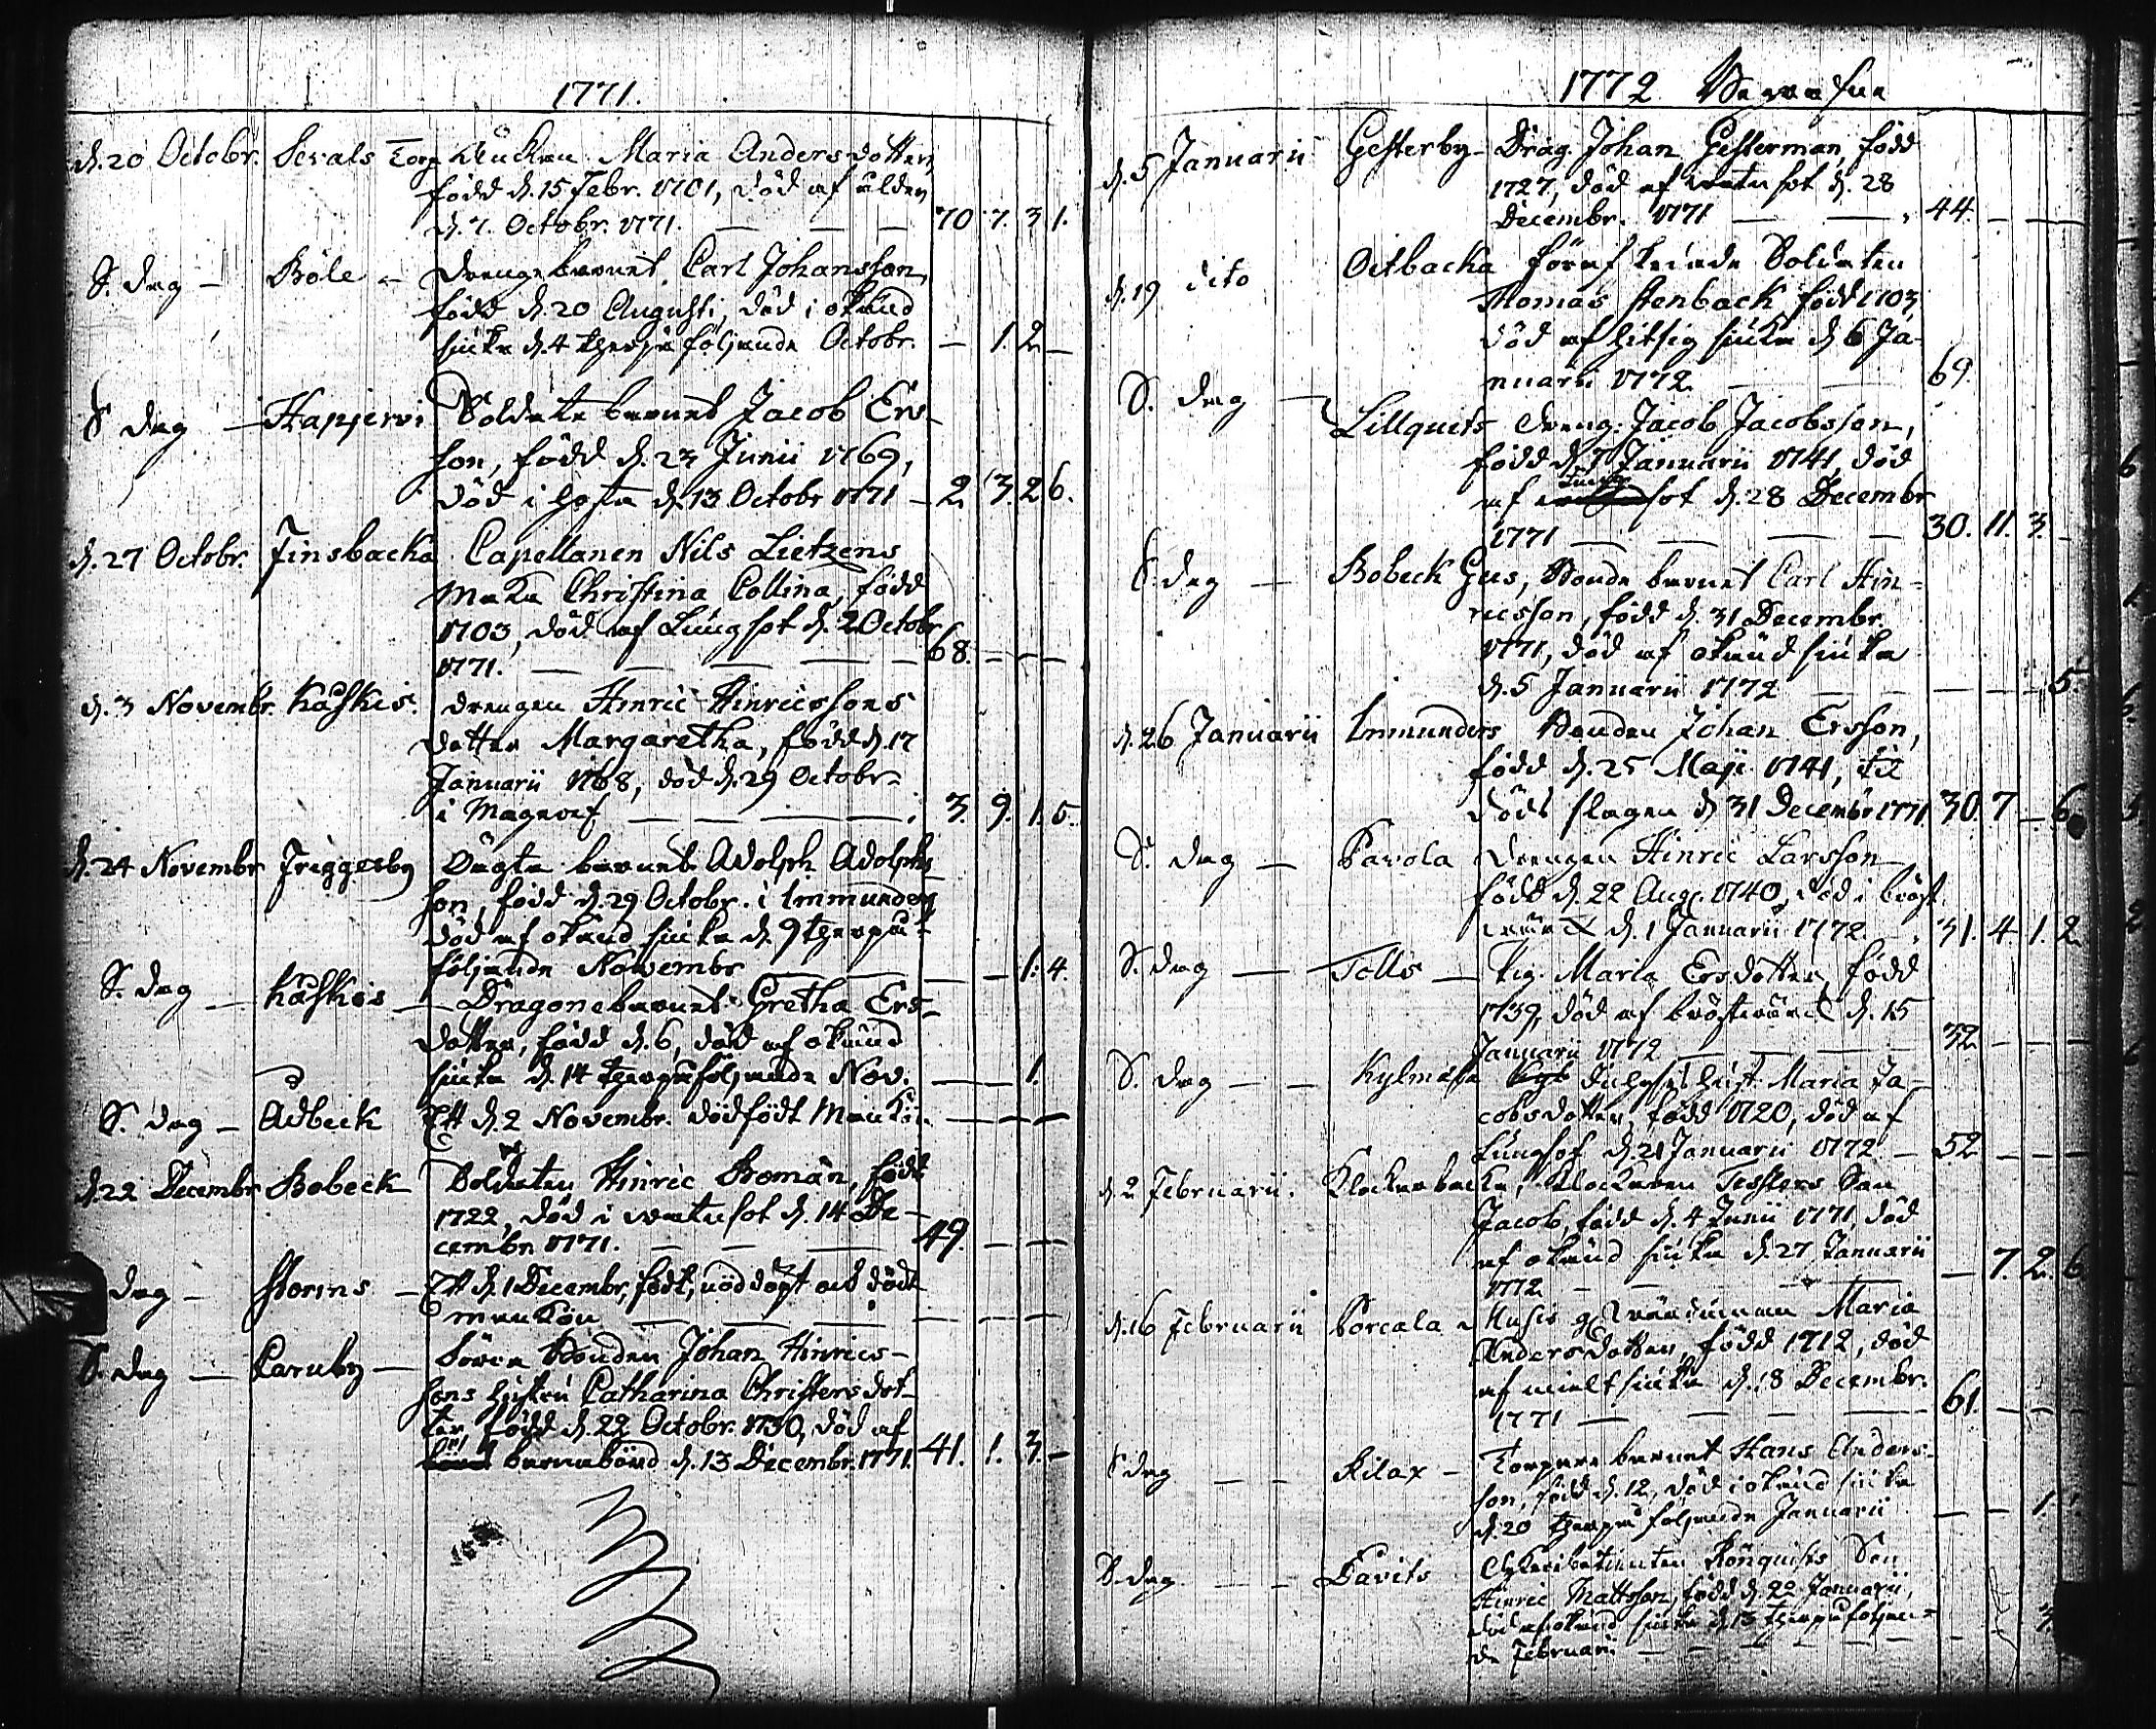 1771.
d. 20 Octobr. Serals Torp Änckan Maria Andersdotter,
född d. 15 Febr. 1701, död af ålder
d. 7. Octobr. 1771. — — — 70. 7. 3. 1.
S. dag — Böle — Drengebarnet Carl Johansson,
född d. 20 Augusti, död i okänd
siuka d. 4 therpå följande Octobr. — 1. 2 —
S dag — Hapjervi Soldate barnet Jacob Ers-
son, född d. 23 Junii 1769,
död i hosta d. 13 Octobr 1771 — 2. 3. 2 6.
d. 27 Octobr. Finsbacka Capellanen Nils Lietzens
Maka Christina Collina, född
1703, död af Lungsot d. 2 Octobr
1771. — — — — 68. — — —
d. 3 Novembr. Kåskis. Drengen Hinric Hinricssons
dotter Margaretha, född d. 17
Januarii 1768, död d. 29 Octobr.
i Magref — — — 3. 9. 1. 5.
d. 24 Novembr Friggesby barnet Adolph Adolphs
son, född d. 29 Octobr. i Immunders
död af okänd siuka d. 9 therpå
följande Novembr — — — 1. 4.
S. dag — Kåskis — Dragonebarnet Gretha Ers-
dotter, född d. 6, död af okänd
siuka d. 14 therpåföljande Nov. — — 1.
S. dag — Adbeck Ett d. 2 Novembr. dödfödt Mankön. — — — —
d. 22 Decembr Bobeck Soldaten Hinric Boman, född
1722, död i watusot d. 14 De-
cembr. 1771. — — — 49. — — —
dag — Storms — Ett d. 1 Decembr, födt, nöddöpt och dödt
mankön — — — — — — —
S. dag — Caruby — Bonden Johan Hinrics-
sons hustru Catharina Christersdot-
ter, född d. 22 Octobr. 1730, död af
barnabörd d. 13 Decembr. 1771. 41. 1. 3. —
1772
d. 5 Januarii Gesterby — Drag. Johan Gesterman, född
1727, död af watusot d. 28
Decembr. 1771 — — 44. — —
d. 19 dito Oitbacka Soldaten
Thomas Stenback född 1703,
död af hitsig siuka d. 6 Ja-
nuarii 1772. — — 69.
S. dag — Lillquets Dreng. Jacob Jacobsson,
född d. 7 Januarii 1741, död
Lung
af sot d. 28 Decembr
1771 — — — — 30. 11. 3. —
S. dag — Bobeck Gus, Bonde barnet Carl Hin-
ricsson, född d. 31 Decembr.
1771, död af okänd siuka
d. 5 Januarii 1772 — — — — 5
d. 26 Januarii Immunders Bonden Johan Ersson,
född d. 25 Maji 1741, til
döds slagen d. 31 Decembr 1771 30. 7 — 6
S. dag — Pavola Drengen Hinric Larsson
född d. 22 Aug. 1740, död i bröst
wärck d. 1 Januarii 1772. — 31. 4. 1. 2
S. dag — Tolls — Pig. Maria Ersdotter, född
1739, död af bröstwärck d. 15
Januarii 1772 — — — 32 — — —
S. dag — — Kylmälä Maria Ja-
cobsdotter, född 1720, död af
Lungsot d. 21 Januarii 1772 — 52 — — —
d. 2 Februarii. Klockarbacka, Klockaren Tesslers Son
Jacob, född d. 4 Junii 1771, död
af okänd siuka d. 27 Januarii
1772 — — — — 7. 2. 6
d. 16 Februarii Porcala — Maria
Andersdotter, född 1712, död
af mieltsiuka d. 18 Decembr.
1771 — — — — 61. — — —
S dag — — Kilax — Torpare barnet Hans Anders-
son, född d. 12, död i okänd siuka
d. 20 therpå följande Januarii — — 1.
S. dag — — Davits Rönquists Son
Hinric Mattsson, född d. 22 Januarii,
död af okänd siuka d. 13 therpåföljan-
de Februari. — — — — — 3.